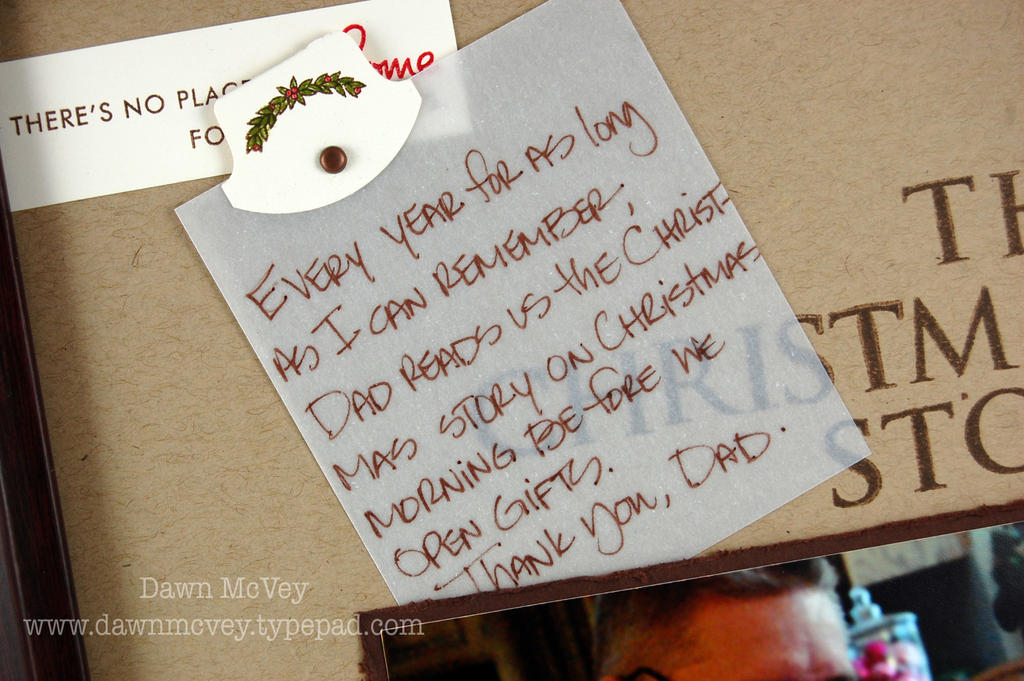 THERE'S NO PLACE
FO
ome
EVERY YEAR for AS long
AS I CAN REMEMBER,
DAD READS US the CHRIST-
MAS STORY ON CHRISTMAS
MORNING BEfore WE
OPEN GIFTS.
THANK YOU, DAD.
TH
CHRISTM
STO
Dawn McVey
www.dawnmcvey.typepad.com